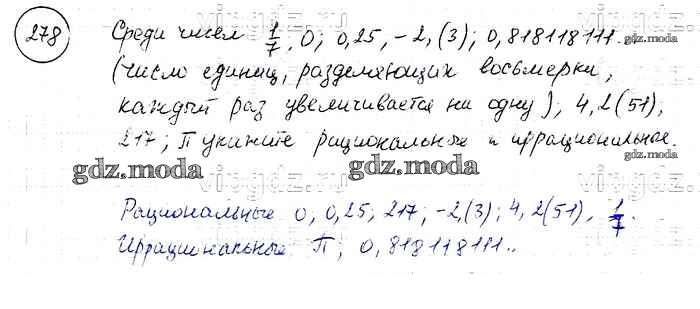 278 Среди чисел 1/7, 0; 0,25, -2,(3); 0,818118111...
(число единиц, разделяющих восьмерки,
каждый раз увеличивается на одну); 4,2(51),
217; П укажите рациональные и иррациональные.
gdz.moda gdz.moda gdz.moda
Рациональные 0, 0,25; 217; -2,(3); 4,2(51), 1/7.
Иррациональные П; 0,818118111..